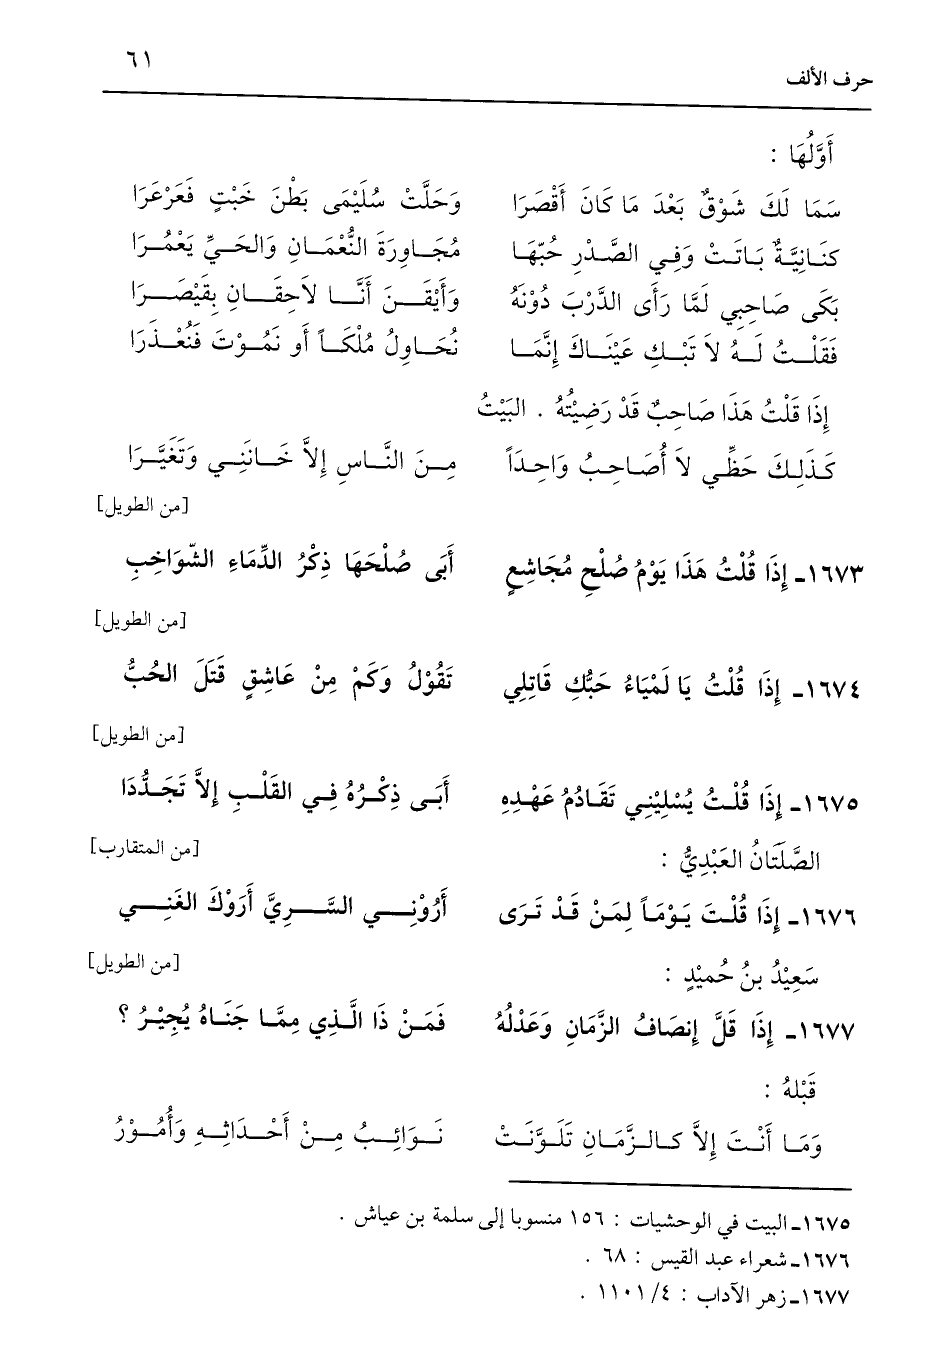 ٦١
حرف الألف
أَوَّلُهَا :
سَمَا لَكَ شَوْقٌ بَعْدَ مَا كَانَ أَقْصَرَا وَحَلَّتْ سُلَيْمَى بَطْنَ خَبْتٍ فَعَرْعَرَا
كنَانِيَّةٌ بَاتَتْ وَفِي الصَّدْرِ حُبّهَا مُجَاوِرَةَ النُّعْمَانِ وَالحَيِّ يَعْمُرَا
بَكَى صَاحِبِي لَمَّا رَأَى الدَّرْبَ دُوْنَهُ وَأَيْقَنَ أَنَّا لاَحِقَانِ بِقَيْصَرَا
فَقَلْتُ لَهُ لاَ تَبْكِ عَيْنَاكَ إِنَّمَا نُحَاوِلُ مُلْكَاً أَو نَمُوْتَ فَنُعْذَرَا
إِذَا قَلْتُ هَذَا صَاحِبٌ قَدْ رَضِيْتُهُ . البَيْتُ
كَذَلِكَ حَظِّي لاَ أُصَاحِبُ وَاحِدَاً مِنَ النَّاسِ إِلاَّ خَانَنِي وَتَغَيَّرَا
[من الطويل]
١٦٧٣ـ إِذَا قُلْتُ هَذَا يَوْمُ صُلْحِ مُجَاشِعٍ أَبَى صُلْحَهَا ذِكْرُ الدِّمَاءِ الشّوَاخِبِ
[من الطويل]
١٦٧٤ـ إِذَا قُلْتُ يَا لَمْيَاءُ حَبُّكِ قَاتِلِي تَقُوْلُ وَكَمْ مِنْ عَاشِقٍ قَتَلَ الحُبُّ
[من الطويل]
١٦٧٥ـ إِذَا قُلْتُ يُسْلِيْنِي تَقَادُمُ عَهْدِهِ أَبَى ذِكْرُهُ فِي القَلْبِ إِلاَّ تَجَدُّدَا
الصَّلَتَانُ العَبْدِيُّ : [من المتقارب]
١٦٧٦ـ إِذَا قُلْتَ يَوْمَاً لِمَنْ قَدْ تَرَى أَرُوْنِي السَّرِيَّ أَرَوْكَ الغَنِي
سَعِيْدُ بنُ حُميْدٍ : [من الطويل]
١٦٧٧ـ إِذَا قَلَّ إِنصَافُ الزَّمَانِ وَعَدْلُهُ فَمَنْ ذَا الَّذِي مِمَّا جَنَاهُ يُجِيْرُ ؟
قَبْلهُ :
وَمَا أَنْتَ إِلاَّ كَالزَّمَانِ تَلَوَّنَتْ نَوَائِبُ مِنْ أَحْدَاثِهِ وَأُمُوْرُ
١٦٧٥ـ البيت في الوحشيات : ١٥٦ منسوبا إلى سلمة بن عياش .
١٦٧٦ـ شعراء عبد القيس : ٦٨ .
١٦٧٧ـ زهر الآداب : ٤/ ١١٠١ .